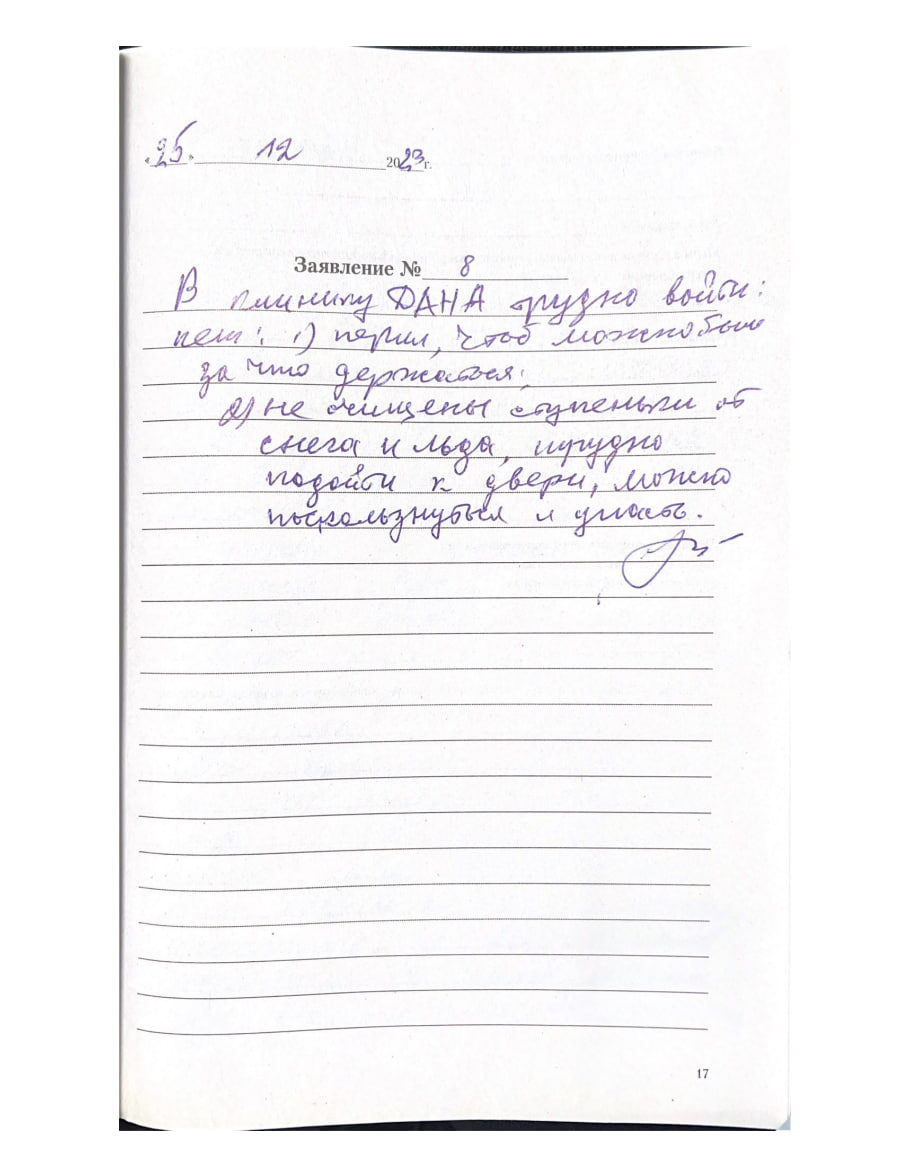 «25» 12 2023 г.
Заявление № 8
В клинику ДАНА трудно войти:
нет: 1) перил, чтоб можно было
за что держаться;
2) не очищены ступеньки от
снега и льда, трудно
подойти к двери, можно
поскользнуться и упасть.
17